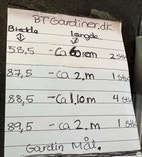 BT Gardiner.dk
Bredde Længde
58,5 - ca 60 cm 2 stk
87,5 - ca 2,m 1 stk
88,5 - ca 1,10m 4 stk
89,5 - ca 2,m 1 stk
Gardin Mål.